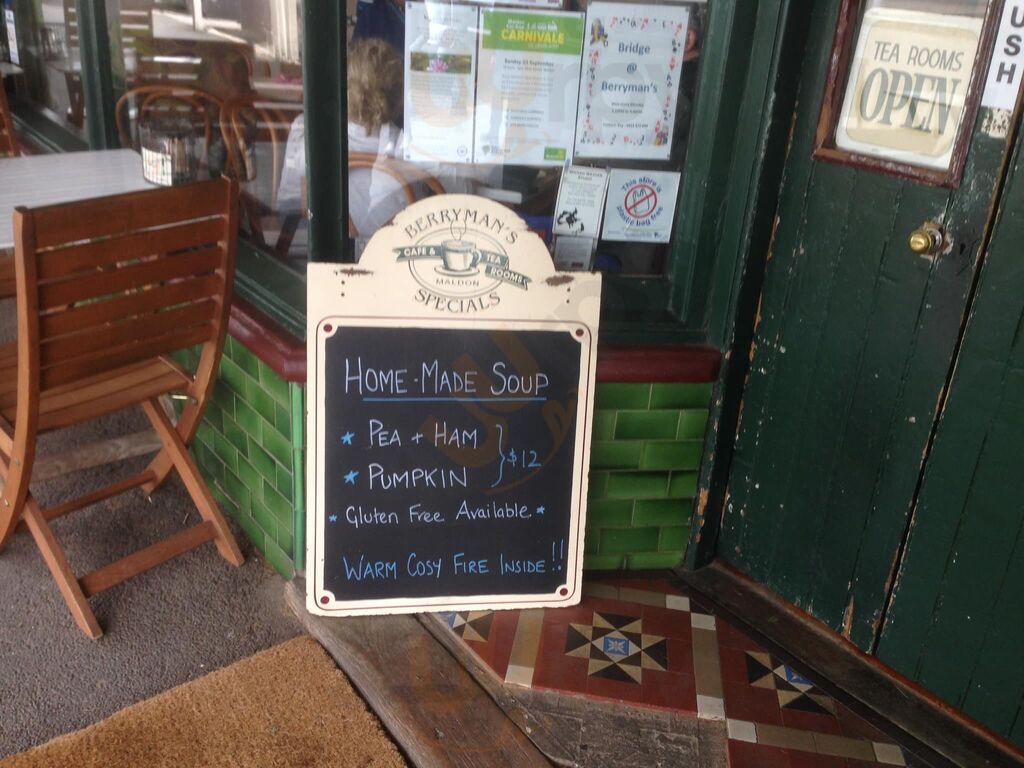 CARNIVALE
Bridge
@
Berryman's
This store is
plastic bag free
TEA ROOMS
OPEN
USH
BERRYMAN'S
CAFE & TEA ROOMS
MALDON
SPECIALS
HOME-MADE SOUP
* PEA + HAM
* PUMPKIN } $12
* Gluten Free Available *
WARM COSY FIRE INSIDE!!